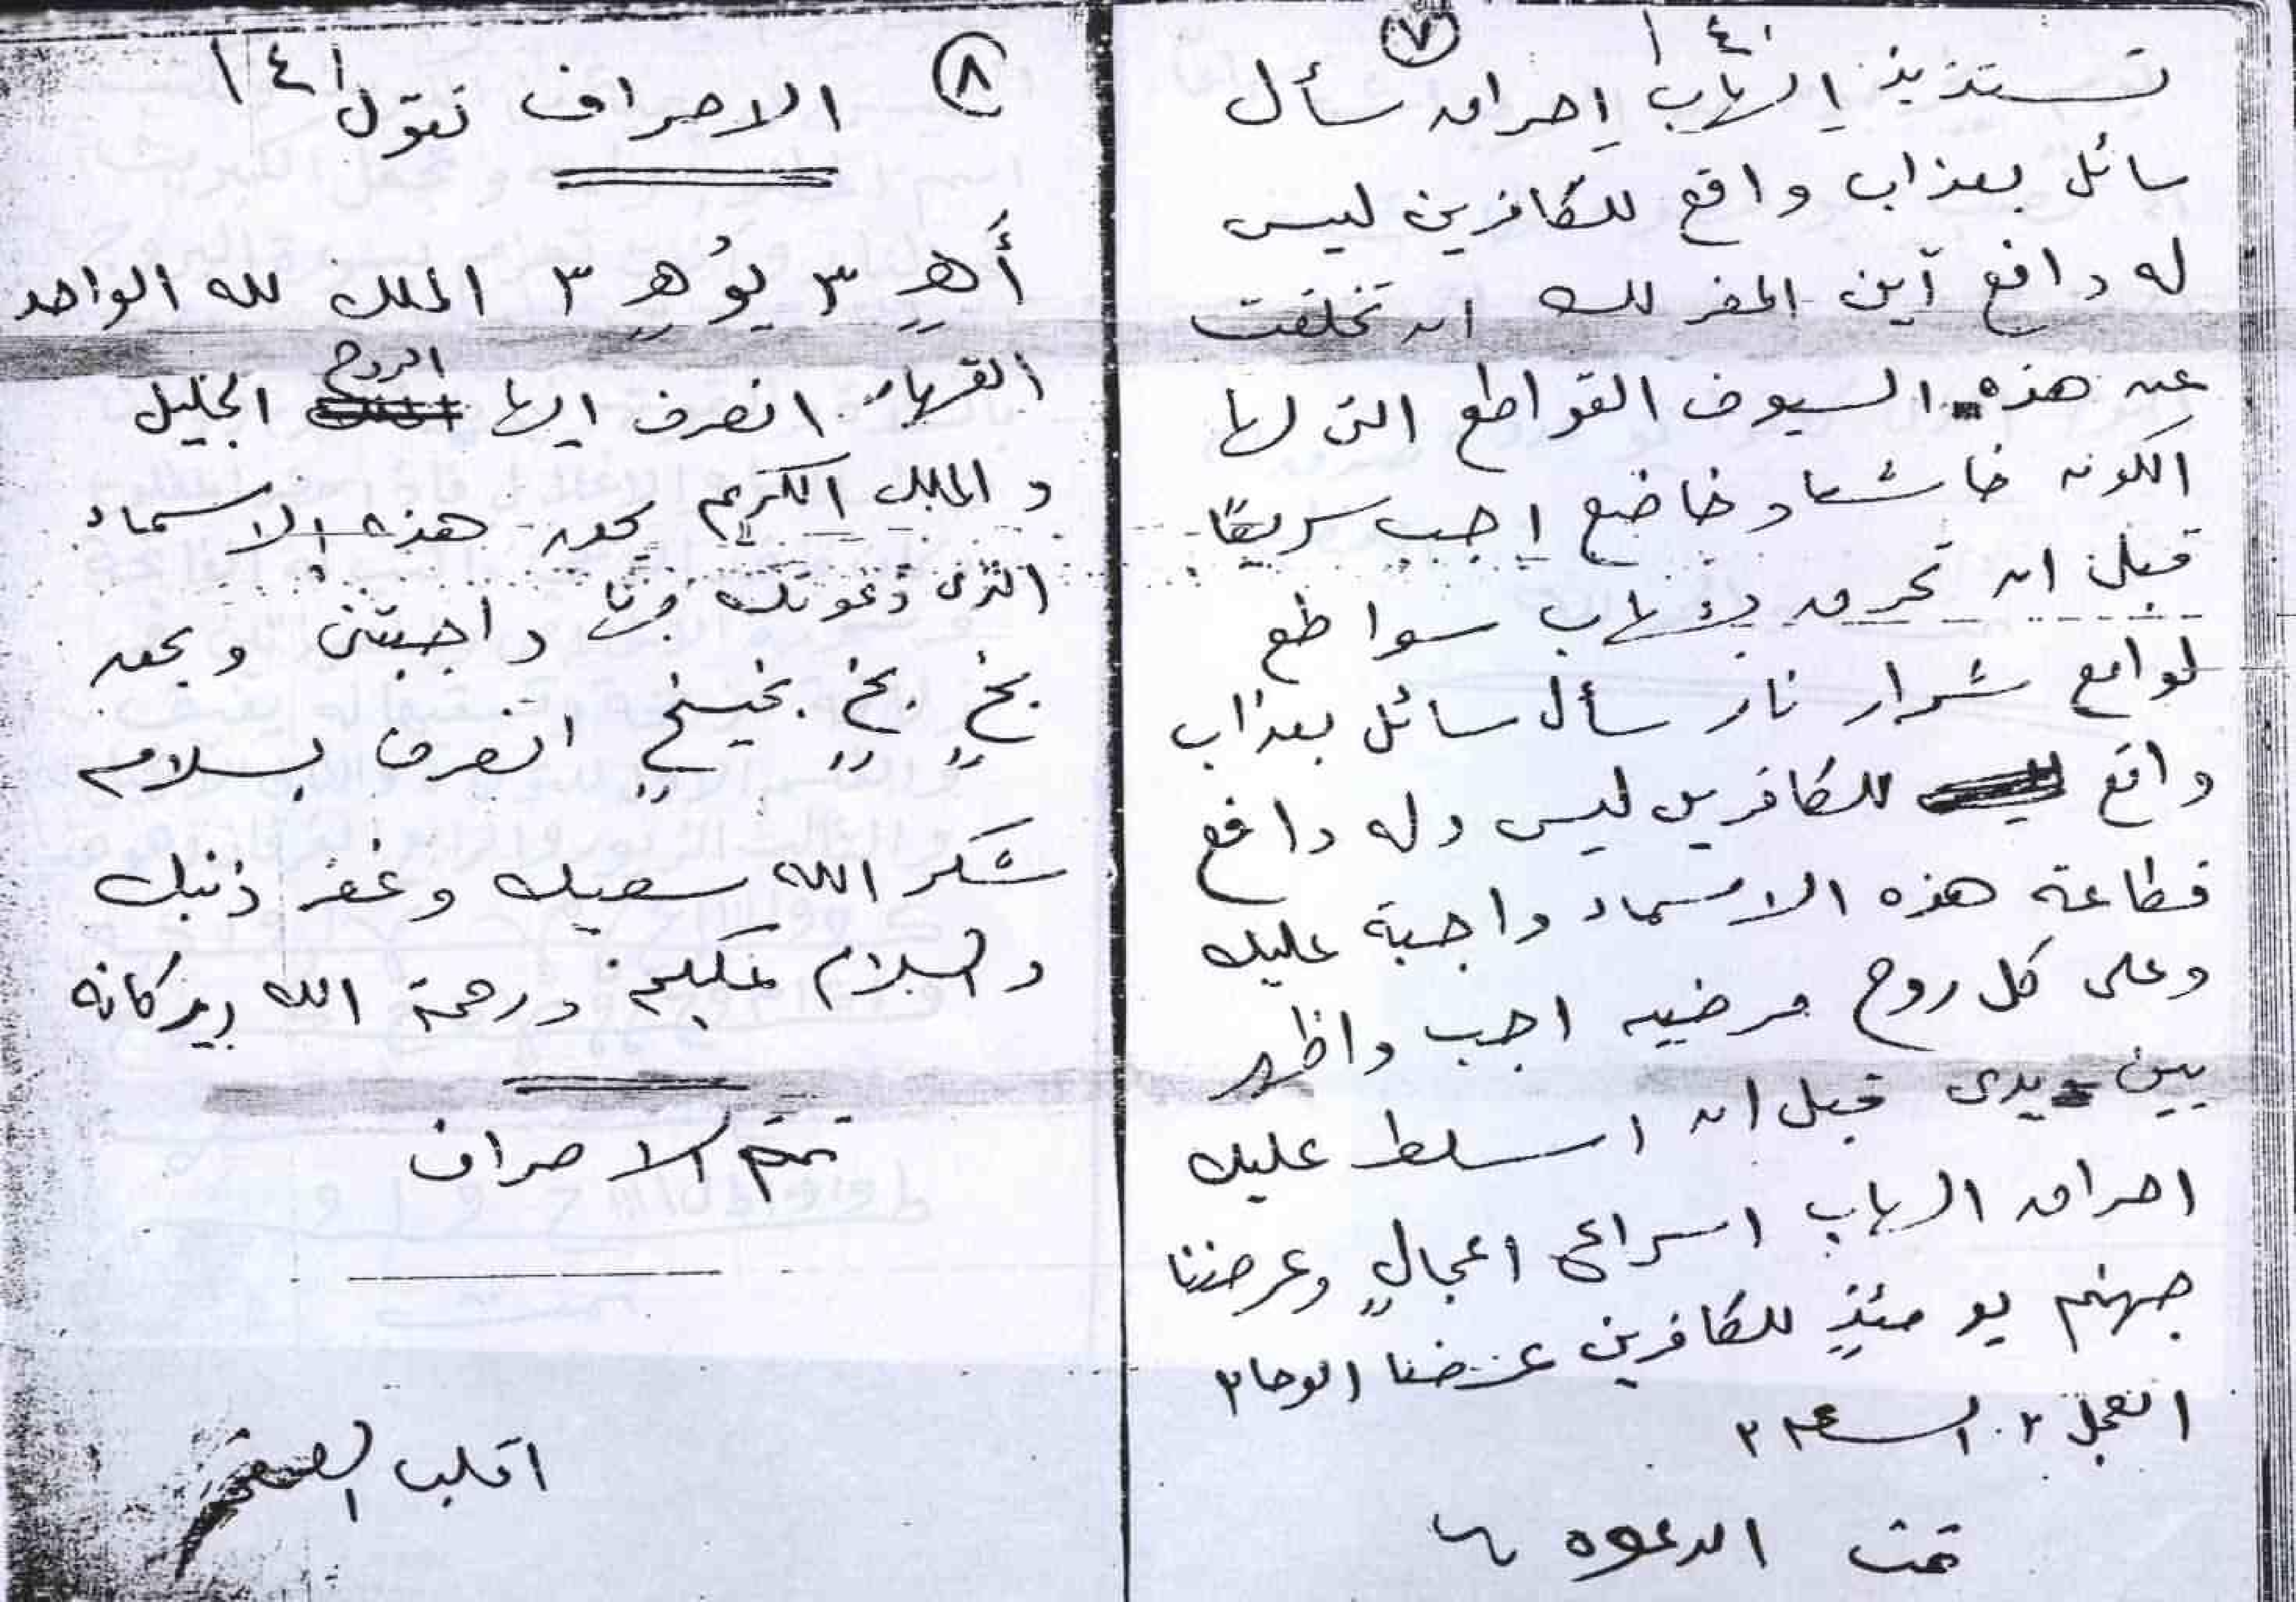 ٧
٤١
إلهاب إحراق سأل
سائل بعذاب واقع للكافرين ليس
له دافع أين المفر لك ان تخلفت
عن هذه السيوف القواطع التى لها
الكون خاشعا وخاضع اجب سريعًا
قبل ان تحرق بإلهاب سواطع
لوامع شرار نار سأل سائل بعذاب
واقع للكافرين ليس وله دافع
فطاعة هذه الاسماء واجبة عليك
وعلى كل روح مرضيه اجب واظهر
بين يدى قبل ان اسلط عليك
احراق الهاب اسراعى اعجالٍ وعرضننا
جهنم يومئذٍ للكافرين عرضنا الوحا٢
العجل ٢ الساعه ٢
تمت الدعوه
٨
٤١
الاصراف تقول
أَهٍ ٣ يوُهٍ ٣ الملك لله الواحد
القهار انصرف ايها الروح الجليل
والملك الكريم بحق هذه الاسماء
الذى دعوتك بها واجبتنى وبحق
بخٍ بخٍ بخيخٍ انصرف بسلام
شكر الله سعيك وغفر ذنبك
والسلام عليكم ورحمة الله وبركاته
تمم الاصراف
اقلب الصفحه